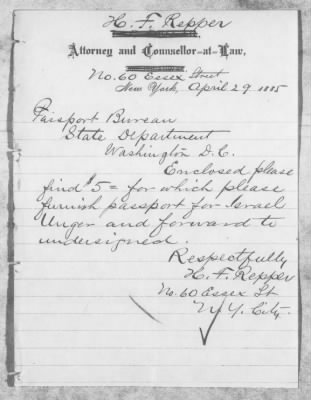 H. F. Repper
Attorney and Counsellor-at-Law,
No. 60 Essex Street
New York, April 29 1885
Passport Bureau
State Department
Washington D.C.
Enclosed please
find $5= for which please
furnish passport for Israel
Unger and forward to
undersigned.
Respectfully
H. F. Repper
No. 60 Essex St
N. Y. City.